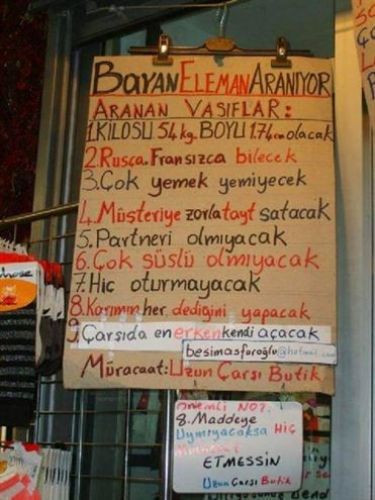 BAYAN ELEMAN ARANIYOR
ARANAN VASIFLAR:
1.KİLOSU 54 kg. BOYU 1.74cm olacak
2.Rusça.Fransızca bilecek
3.Çok yemek yemiyecek
4.Müsteriye zorla tayt satacak
5.Partneri olmıyacak
6.Çok süslü olmıyacak
7.Hic oturmayacak
8.Karımın her dediğini yapacak
9.Çarsıda en erken kendi açacak
besimasfuroğlu@hotmail.com
Müracaat: Uzun Çarsı Butik
Önemli NOT:
8.Maddeye
Uymıyacaksa Hiç
ETMESSİN
Uzun Çarsı Butik